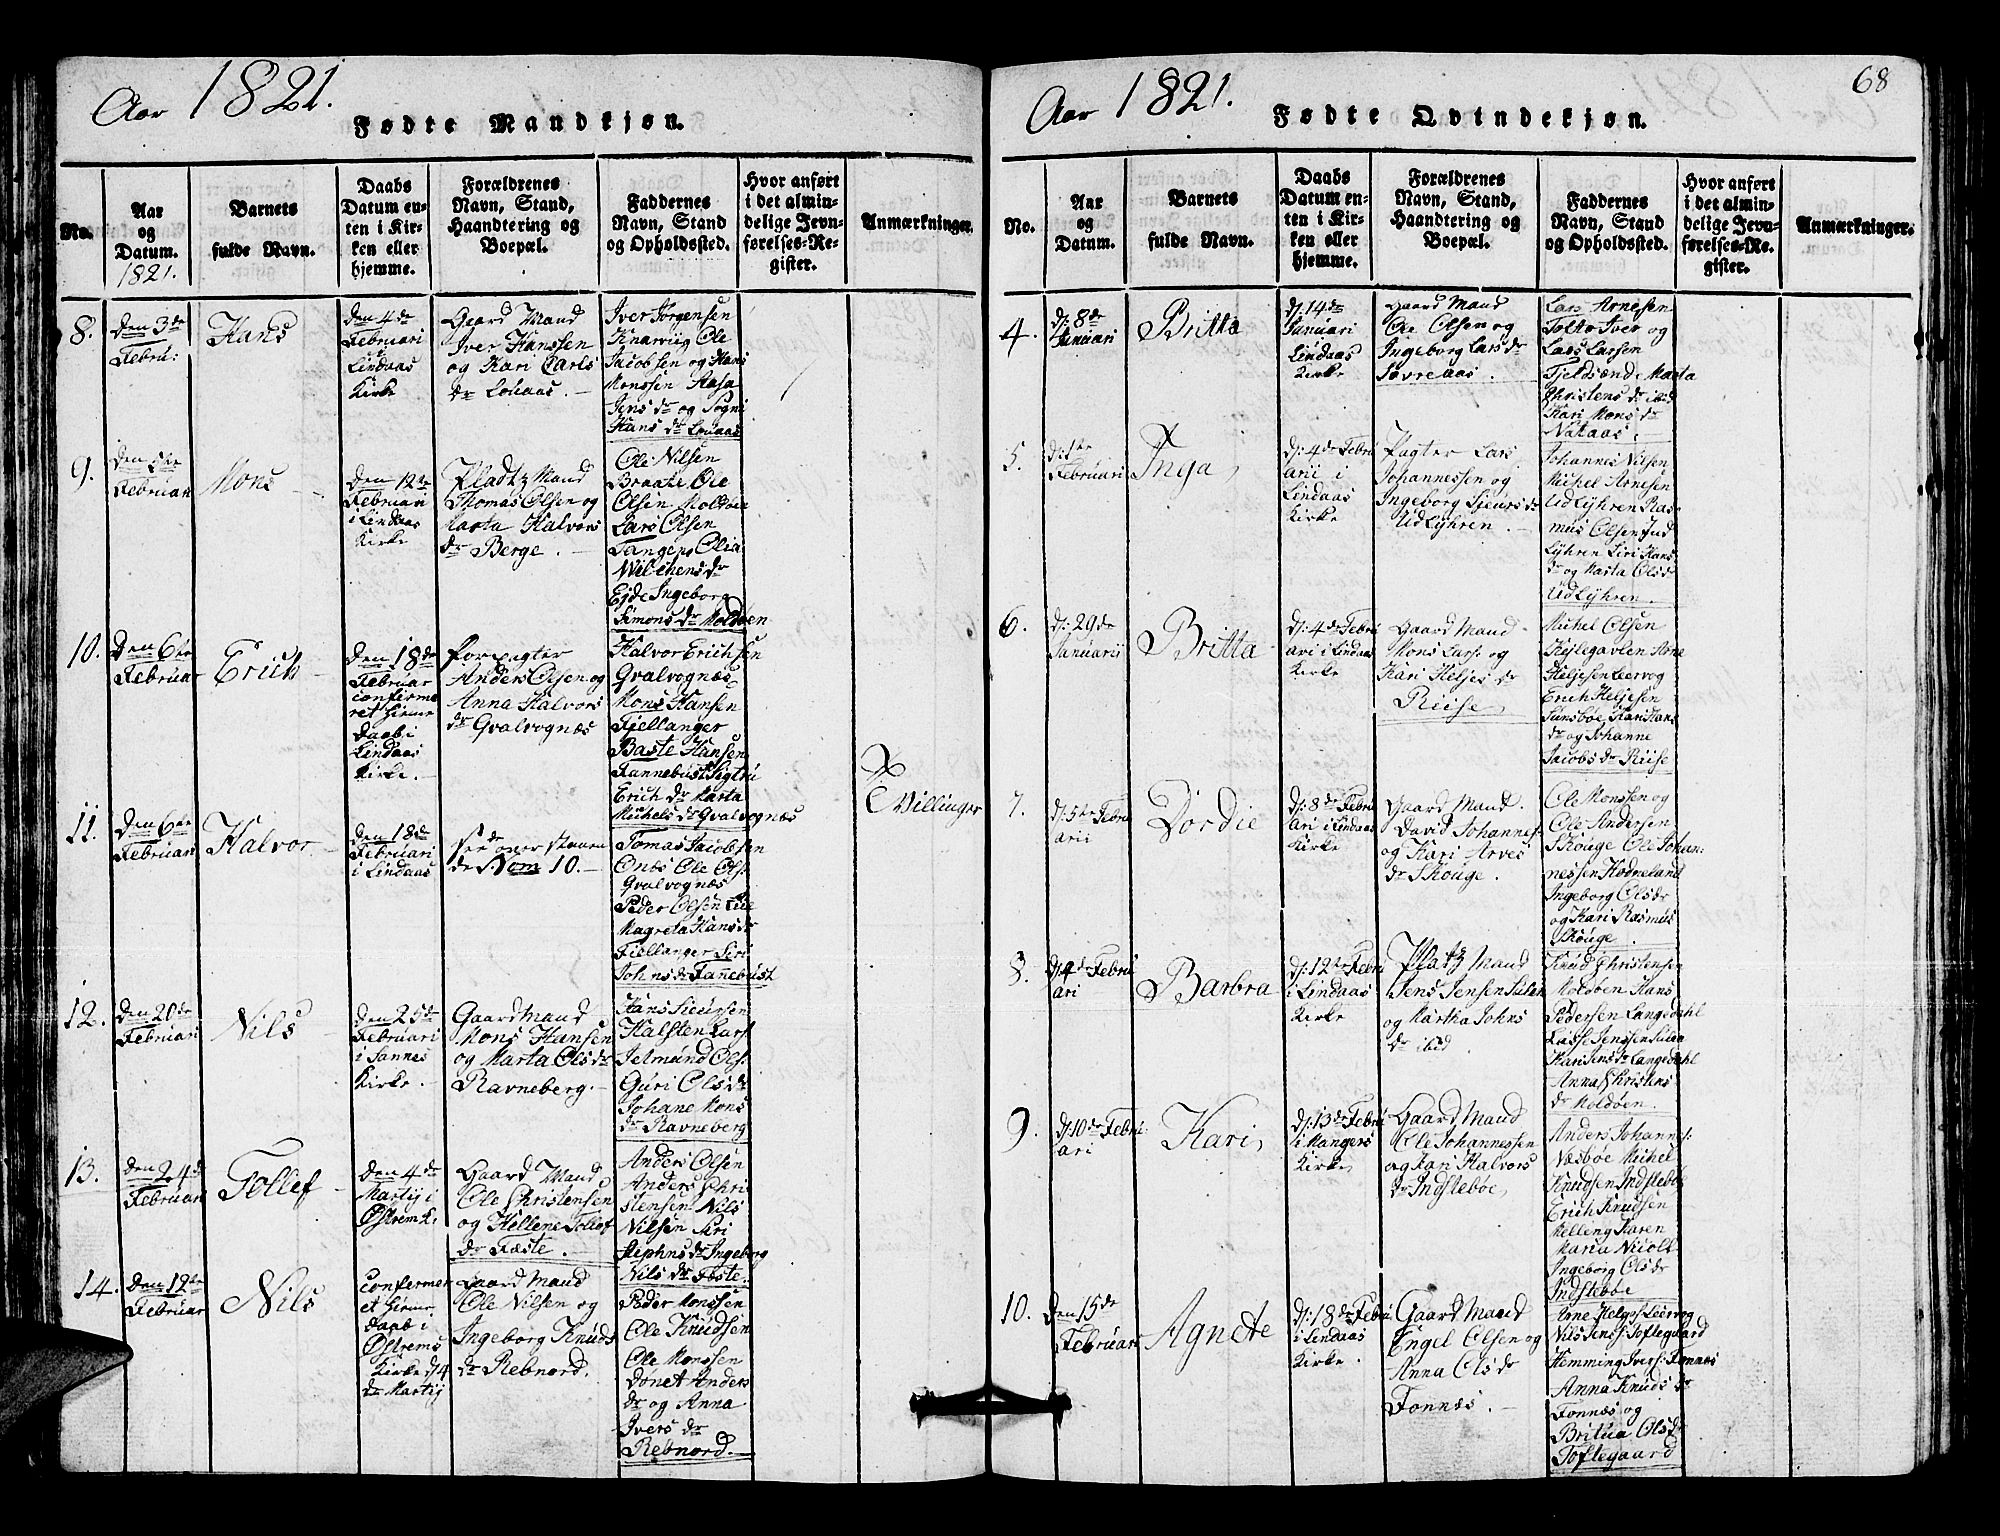 Aar 1821.
Fødte Mandkjøn.
No.
Aar
og
Datum.
1821.
Barnets
fulde Navn.
Daabs
Datum en-
ten i Kir-
ken eller
hjemme.
Forældrenes
Navn, Stand,
Haandtering og
Boepæl.
Faddernes
Navn, Stand
og Opholdssted.
Hvor anført
i det almin-
delige Jevn-
førelses-Re-
gister.
Anmærkninger.
8.
Den 3de
Febru:
Hans
Den 4de
Februari
Lindaas
Kirke
Gaard Mand
Iver Hanssen
og Kari Carls
dr Lonaas.
Iver Jørgensen
Knarvig Ole
Jacobsen og Hans
Monssen Aasa
Jens dr og Sogni
Hans dr Lonaas
9.
Den 5te
Februari
Mons
Den 12te
Februari
i Lindaas
Kirke
Pladtz Mand
Thomas Olsen og
Marta Halvors
dr Berge.
Ole Nilsen
Braate Ole
Olsen Moltøen
Lars Olsen
Tangen Olia
Wilchens dr
Eide Ingeborg
Simons dr Moldøen
10.
Den 6te
Februar
Erich
Den 18de
Februar
confirme
ret hieme
Daab i
Lindaas
Kirke.
Forpagter
Anders Olsen og
Anna Halvors
dr Qvalvognæs
Halvor Erichsen
Qvalvognæs
Mons Hansen
Fjellanger
Baste Hansen
Fannebust Sigtru
Erich dr Marta
Michels dr Qvalvognæs
Tvillinger
11.
Den 6te
Februari
Halvor
Den 18de
Februari
i Lindaas
see over staaen
de Nom 10.
Tomas Jacobsen
Onæs Ole Ols:
Qvalvognæs
Peder Olsen Lue
Magreta Hans dr
Fiellanger Siri
Johns dr Fanebust
12.
Den 20de
Februari
Nils
Den 25de
Februari
i Sannes
Kirke.
Gaard Mand
Mons Hansen
og Marta Ols dr
Ravneberg.
Hans Sieursen
Halsten Lars:
Jetmund Ols:
Guri Ols dr
Johane Mons
dr Ravneberg
13.
Den 24de
Februari
Tollef
Den 4de
Martij i
Østrem K.
Gaard Mand
Ole Christensen
og Hellene Tollef
dr Fæste.
Anders Olsen
Anders Chri
stensen Nils
Nilsen Siri
Stephns dr Ingeborg
Nils dr Føste.
14.
Den 12te
Februar
Nils
confermer
et hieme
daab i
Østrems
Kirke d/4
de Martij
Gaard Mand
Ole Nilsen og
Ingeborg Knuds
dr Rebnord.
Peder Monssen
Ole Knudsen
Ole Monssen
Donet Anders
dr og Anna
Ivers dr
Rebnord.
68
Aar 1821.
Fødte Qvindekjøn.
No.
Aar
og
Datum.
Barnets
fulde Navn.
Daabs
Datum en-
ten i Kir-
ken eller
hjemme.
Forældrenes
Navn, Stand,
Haandtering og
Boepæl.
Faddernes
Navn, Stand
og Opholdssted.
Hvor anført
i det almin-
delige Jevn-
førelses-Re-
gister.
Anmærkninger.
4.
d/: 8de
Januari
Britta
d/: 14de
Januari
Lindaas
Kirke
Gaard Mand
Ole Olsen og
Ingeborg Lars dr
Sovreaas.
Lars Arnesen
Tolto Iver og
Lars Larsen
Fjeldsænde Marta
Christens dr ibid
Kari Mons dr
Nataas.
5.
d/: 1te
Februari
Inga,
d/: 4de Febru
arii i
Lindaas
Kirke
Pagter Lars
Johannessen og
Ingeborg Sjeurs dr
Udlyhren.
Johannes Nilsen
Michel Arnesen
Udlyhren Ras-
mus Olsen Ind
Lyhren Siri Hans
dr og Marta Ols dr
Udlyhren.
6.
d/: 29de
Januarii
Britta
d/: 4de Febru
ari i Lindaas
Kirke
Gaard Mand
Mons Lars: og
Kari Heljes dr
Riise,
Michel Olsen
Kejlegavlen Arne
Heljesen Leervog
Erich Heljesen
Sunsbøe Kari Hans
dr og Johanne
Jacobs dr Riise
7.
d/: 5te Febru
arii
Dordie
d/: 8de Febru
ari i Lindaas
Kirke
Gaard Mand.
David Johannes:
og Kari Arves
dr Skouge.
Ole Monssen og
Ole Andersen
Skouge Ole Johan:
nessen Hodneland
Ingeborg Ols dr
og Kari Rasmus
Skouge.
8.
d/: 4de Febru
ari
Barbra
d/: 12te Febru
i Lindaas
Kirke
Platz Mand
Jens Jensen Sulen
og Martha Johns
dr ibid
Knud Christensen
Moldøen Hans
Pedersen Langedahl
Lasse Jenssen Sulen
Kari Jens dr Langedahl
Anna Christens
dr Moldøen.
9.
d/: 10de Febru
ari
Kari,
d/: 13de Febru
i Mangers
Kirke,
Gaard Mand
Ole Johannessen
og Kari Halvors
dr Indstebøe,
Anders Johannes:
Næsbøe Michel
Knudsen Indstebøe
Erich Knudsen
Helleng Karen
Maria Nicols
Ingeborg Ols dr
Indstebøe
10.
Den 15de
Februari
Agnete
d/: 18de Febru
i Lindaas
Kirke.
Gaard Mand
Engel Olsen og
Anna Ols dr
Fonnæs.
Arne Helges: Leervog
Nils Jens: Toftegaard
Hemming Ivers: Fonnæs
Anna Knuds dr
Fonnæs og
Britua Ols dr
Toftegaard